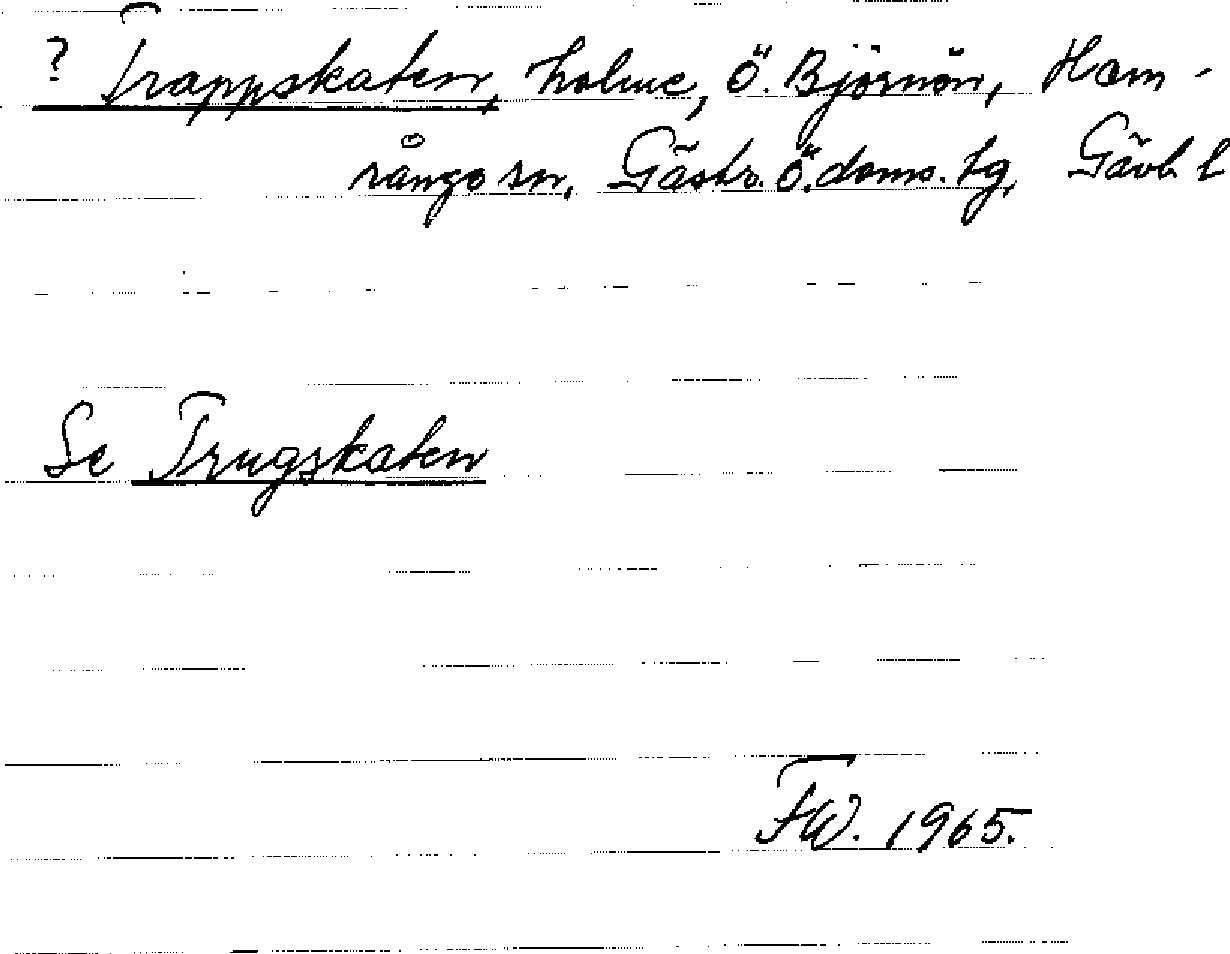 ? Trappskaten, holme, Ö. Björnön, Ham-
rånge sn, Gästr. Ö. doms. tg, Gävl. l
Se Trugskaten
FW. 1965.